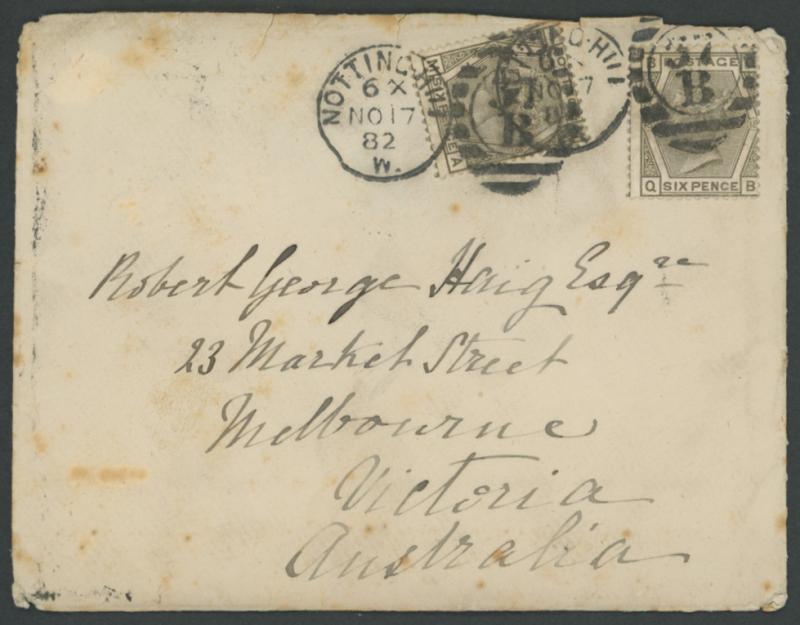 NOTTING-HILL
6 X
NO 17
82
W.
B POSTAGE
B
Q SIX PENCE B
Robert George Haig Esqre
23 Market Street
Melbourne
Victoria
Australia